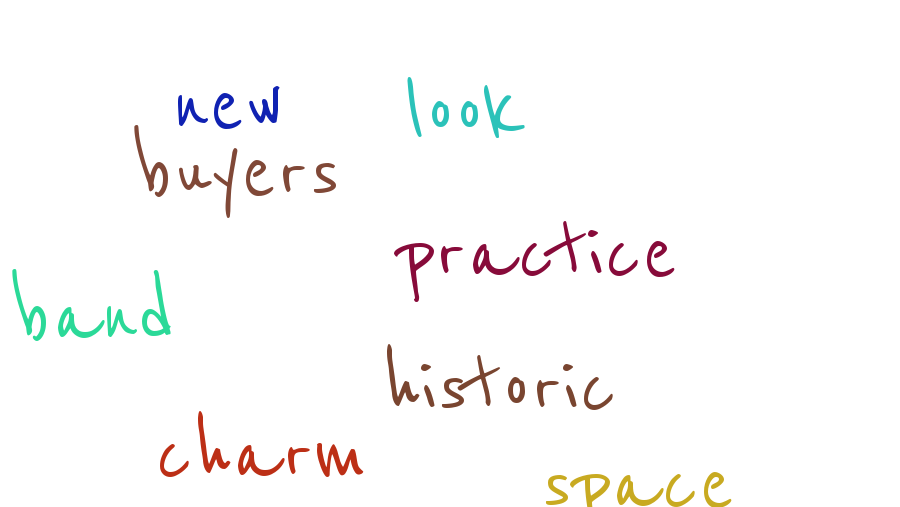 new look
buyers
practice
band
historic
charm
space